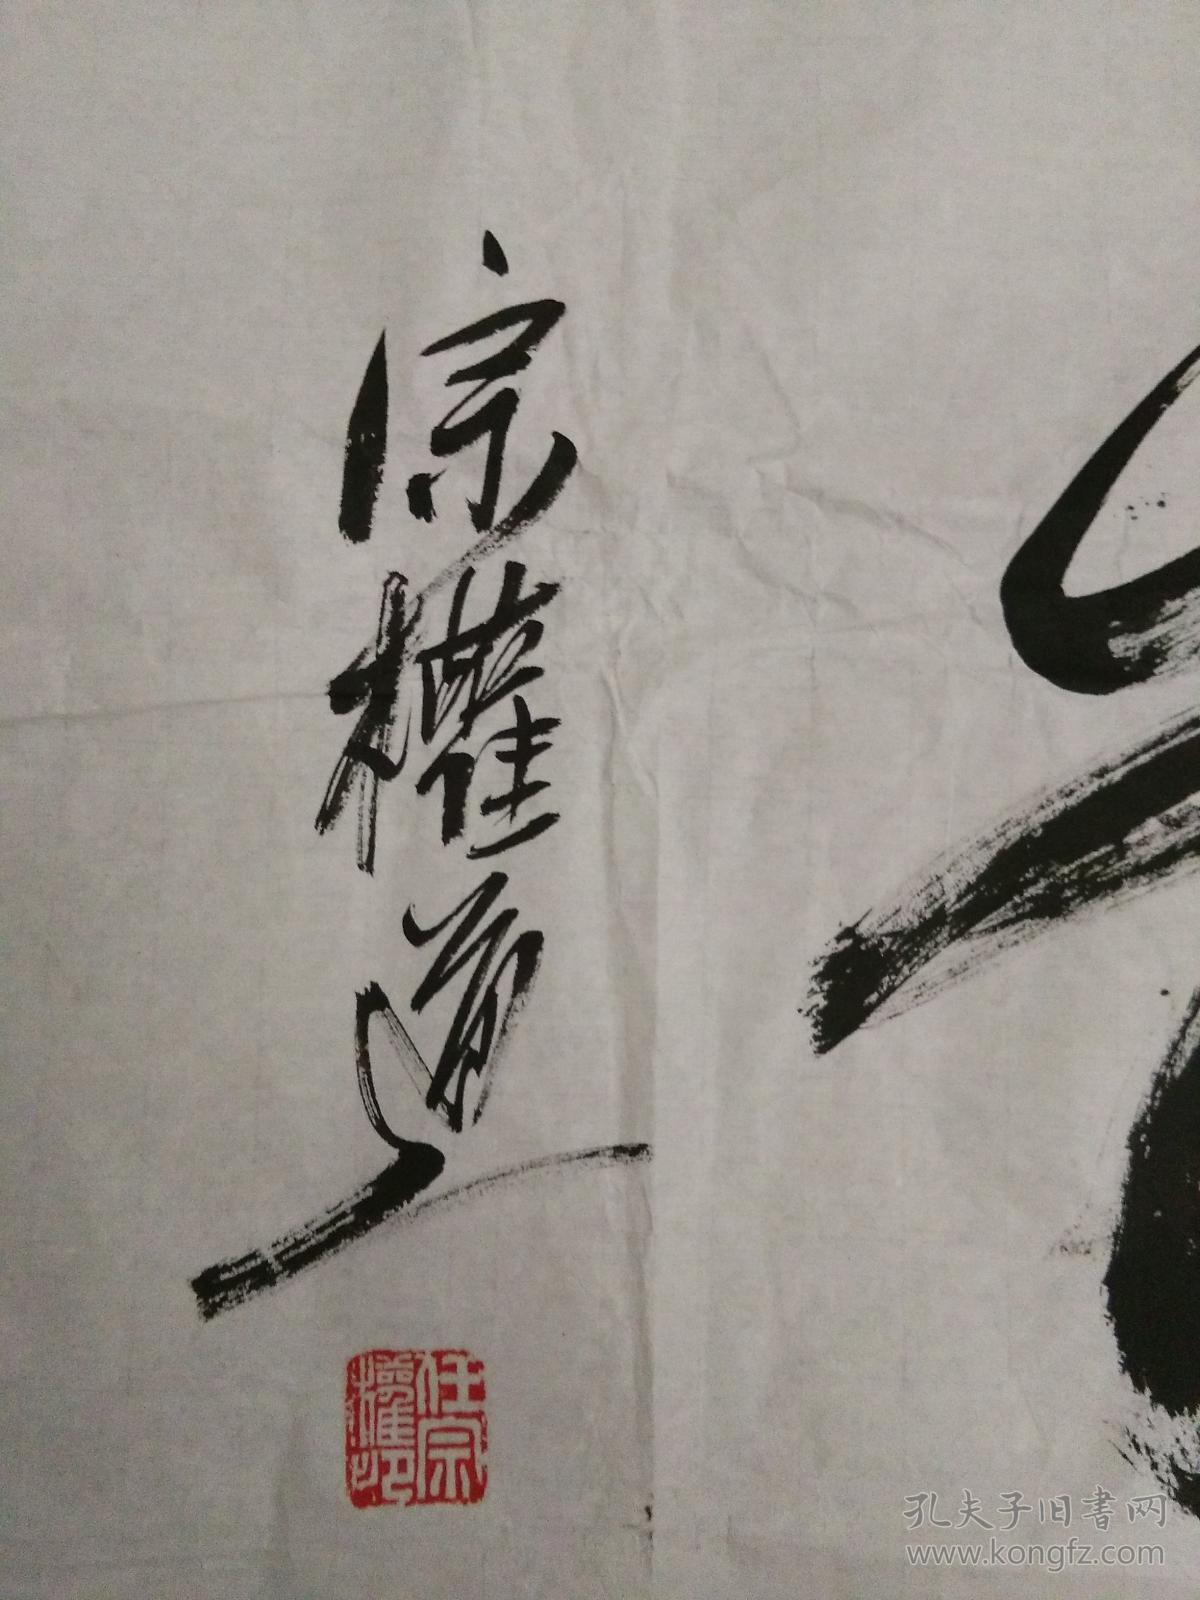 宗權道
任宗
權印
孔夫子旧书网
www.kongfz.com